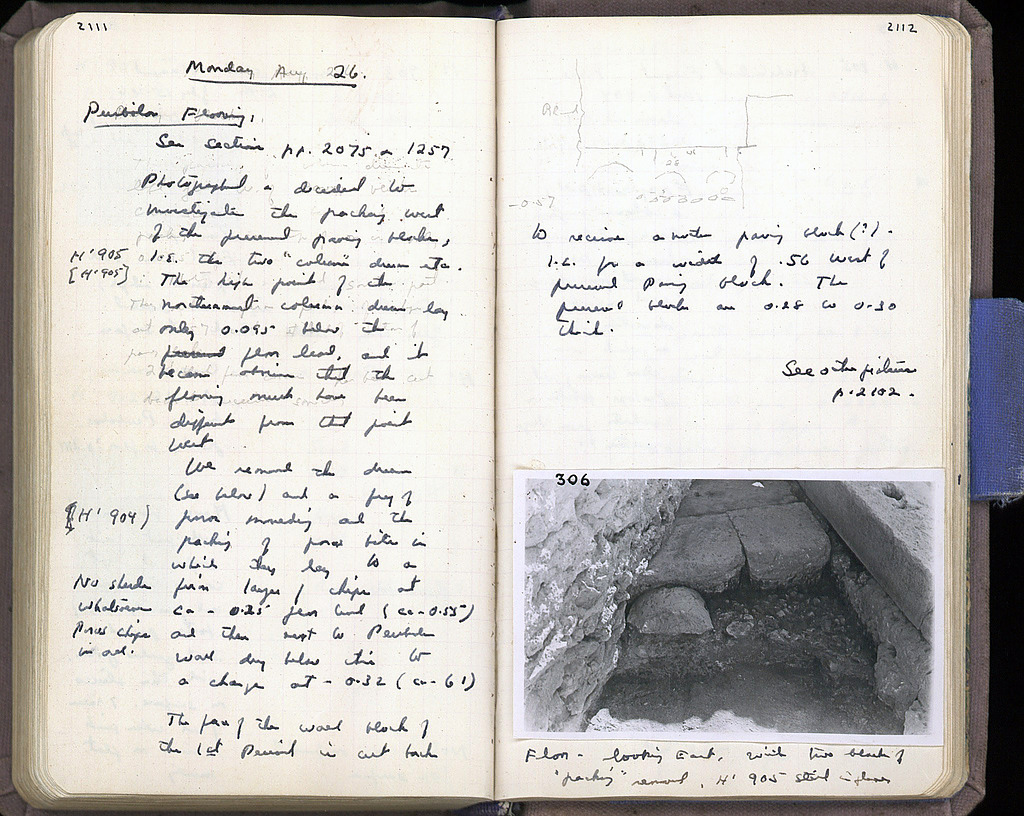 2111
Monday Aug 26.
Peribolos Flooring.
See section pp. 2075 & 1257
Photographed & decided to
investigate the packing west
of the preserved paving blocks,
H' 905
[H' 905]
i.e. the two "column" drums etc.
The high point of the
northernmost column drum lay
only 0.095 below the
preserved floor level, and it
became obvious that the
flooring must have been
different from that point
west
We removed the drum
(see below) and a frag of
[H' 904]
poros moulding and the
packing of poros bits in
which they lay to a
No sherds
whatsoever
Poros chips
in all.
firm layer of chips at
ca - 0.25 floor level (ca -0.55)
and then next to Peribolos
wall dug below this to
a change at - 0.32 (ca - 61)
The face of the wall block of
the 1st Period is cut back
2112
-0.57
to receive another paving block (?).
i.e. for a width of .56 west of
preserved paving block. The
preserved blocks are 0.28 to 0.30
thick.
See other picture
p. 2102.
306
Floor - looking East, with two blocks of
"packing" removed, H' 905 still in place